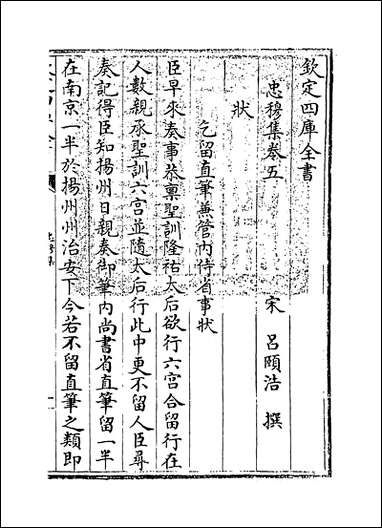 欽定四庫全書
忠穆集卷五
宋 呂頤浩 撰
狀
乞留直筆兼管內侍省事狀
臣早來奏事恭稟聖訓隆祐太后欲行六宮合留行在
人數親承聖訓六宮並隨太后行此中更不留人臣尋
奏記得臣知揚州日親奏御筆內尚書省直筆留一半
在南京一半於揚州州治安下今若不留直筆之類即